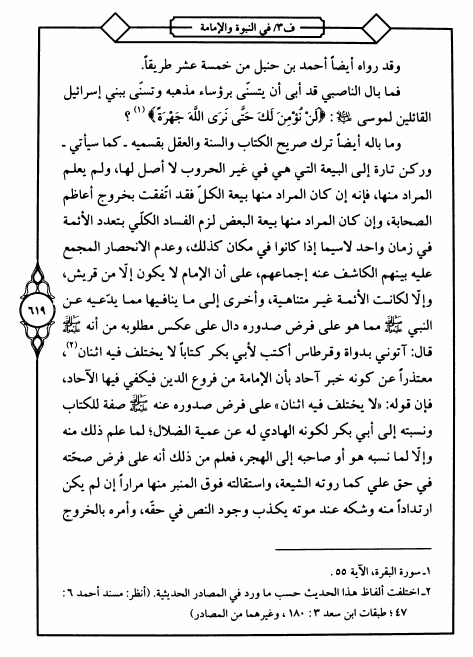 ف٣/ في النبوة والإمامة
وقد رواه أيضاً أحمد بن حنبل من خمسة عشر طريقاً.
فما بال الناصبي قد أبى أن يتسنّى برؤساء مذهبه وتسنّى ببني إسرائيل
القائلين لموسى ﵇: ﴿لَنْ نُؤْمِنَ لَكَ حَتَّى نَرَى اللَّهَ جَهْرَةً﴾ (١) ؟
وما باله أيضاً ترك صريح الكتاب والسنة والعقل بقسميه ـ كما سيأتي ـ
وركن تارة إلى البيعة التي هي في غير الحروب لا أصل لها، ولم يعلم
المراد منها، فإنه إن كان المراد منها بيعة الكلّ فقد اتّفقت بخروج أعاظم
الصحابة، وإن كان المراد منها بيعة البعض لزم الفساد الكلّي بتعدد الأئمة
في زمان واحد لاسيما إذا كانوا في مكان كذلك، وعدم الانحصار المجمع
عليه بينهم الكاشف عنه إجماعهم، على أن الإمام لا يكون إلّا من قريش،
وإلّا لكانت الأئمة غير متناهية، وأخرى إلى ما ينافيها مما يدّعيه عن
النبي ﷺ مما هو على فرض صدوره دال على عكس مطلوبه من أنه ﷺ
قال: آتوني بدواة وقرطاس أكتب لأبي بكر كتاباً لا يختلف فيه اثنان (٢)،
معتذراً عن كونه خبر آحاد بأن الإمامة من فروع الدين فيكفي فيها الآحاد،
فإن قوله: «لا يختلف فيه اثنان» على فرض صدوره عنه ﷺ صفة للكتاب
ونسبته إلى أبي بكر لكونه الهادي له عن عمية الضلال؛ لما علم ذلك منه
وإلّا لما نسبه هو أو صاحبه إلى الهجر، فعلم من ذلك أنه على فرض صحّته
في حق علي كما روته الشيعة، واستقالته فوق المنبر منها مراراً إن لم يكن
ارتداداً منه وشكه عند موته يكذب وجود النص في حقّه، وأمره بالخروج
٦١٩
١ـ سورة البقرة، الآية ٥٥ .
٢ـ اختلفت ألفاظ هذا الحديث حسب ما ورد في المصادر الحديثية. (أنظر: مسند أحمد ٦ :
٤٧ ؛ طبقات ابن سعد ٣ : ١٨٠ ، وغيرهما من المصادر)